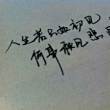 人生若只如初见
何事秋风悲